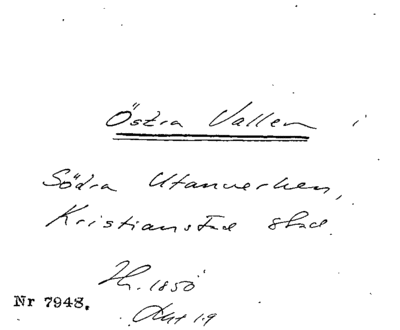 Östra Vallen i
Södra Utanverken,
Kristianstad stad.
H. 1850
Nr 7948.